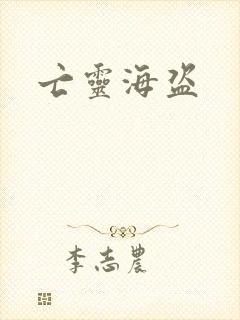 亡靈海盗
李志農